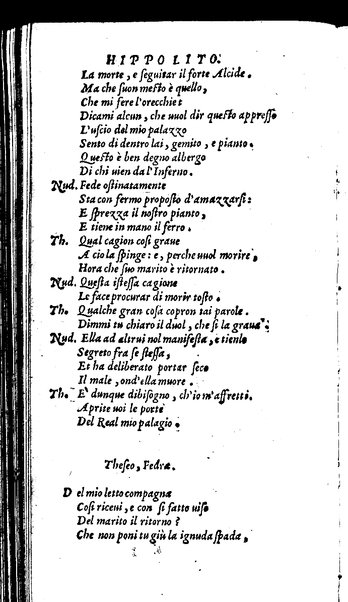 HIPPOLITO.
La morte, e seguitar il forte Alcide.
Ma che suon mesto è quello,
Che mi fere l'orecchie?
Dicami alcun, che uuol dir questo appresso
L'uscio del mio palazzo
Sento di dentro lai, gemito, e pianto.
Questo è ben degno albergo
Di chi uien dal'Inferno.
Nud. Fede ostinatamente
Sta con fermo proposto d'amazzarsi:
E sprezza il nostro pianto,
E tiene in mano il ferro.
Th. Qual cagion cosi graue
A cio la spinge: e, perche uuol morire,
Hora che suo marito è ritornato.
Nud. Questa istessa cagione
Le face procurar di morir tosto.
Th. Qualche gran cosa copron tai parole.
Dimmi tu chiaro il duol, che si la graua?
Nud. Ella ad altrui nol manifesta, e tienlo
Segreto fra se stessa,
Et ha deliberato portar seco
Il male, ond'ella muore.
Th. E' dunque dibisogno, ch'io m'affretti.
Aprite uoi le porte
Del Real mio palagio.
Theseo, Fedra.
Del mio letto compagna
Cosi riceui, e con si fatto uiso
Del marito il ritorno?
Che non poni tu giù la ignuda spada,